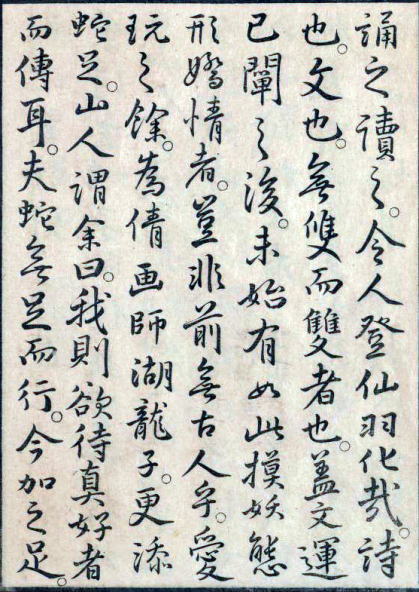 誦之讀之。令人登仙羽化哉。詩
也。文也。無雙而雙者也。蓋文運
已闡之後。未始有如此摸妖態
形嬌情者。豈非前無古人乎。愛
玩之餘。為倩画師湖龍子。更添
蛇足。山人謂余曰。我則欲待真好者
而傳耳。夫蛇無足而行。今加之足。